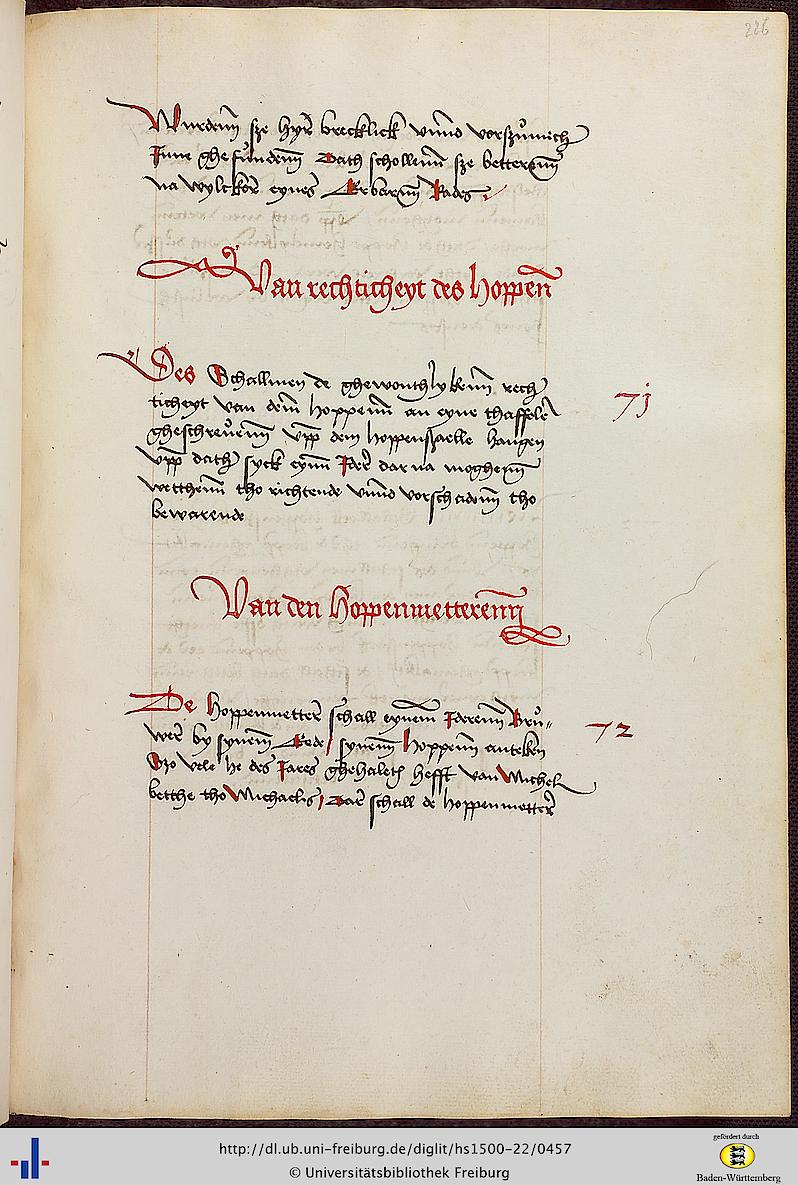 226
Wurdenn sze hyr brecklick unnd vorszumich
Inne ghefundenn Dath schollenn sze betterenn
na wylckor eynes Erbaren Rades
Van rechticheyt des Hoppenn
Des Schallmen de ghewonthlykenn rech
ticheyt van dem hoppenn an eyne thaffele
gheschrevenn upp dem hoppenszaelle hangen
upp dath syck eynn Ider dar na moghenn
wetthenn tho richtende unnd vor schadenn tho
bewarende
71
Van den Hoppenmetterenn
De Hoppenmetter schall eynem Iderenn Bru„
wer by synem Eede synenn hoppenn anteken
Szo vele he des Jares ghehaleth hefft van Michel
betthe tho Michaelis Dar schall de hoppenmetter
72
http://dl.ub.uni-freiburg.de/diglit/hs1500-22/0457
© Universitätsbibliothek Freiburg
gefördert durch
Baden-Württemberg